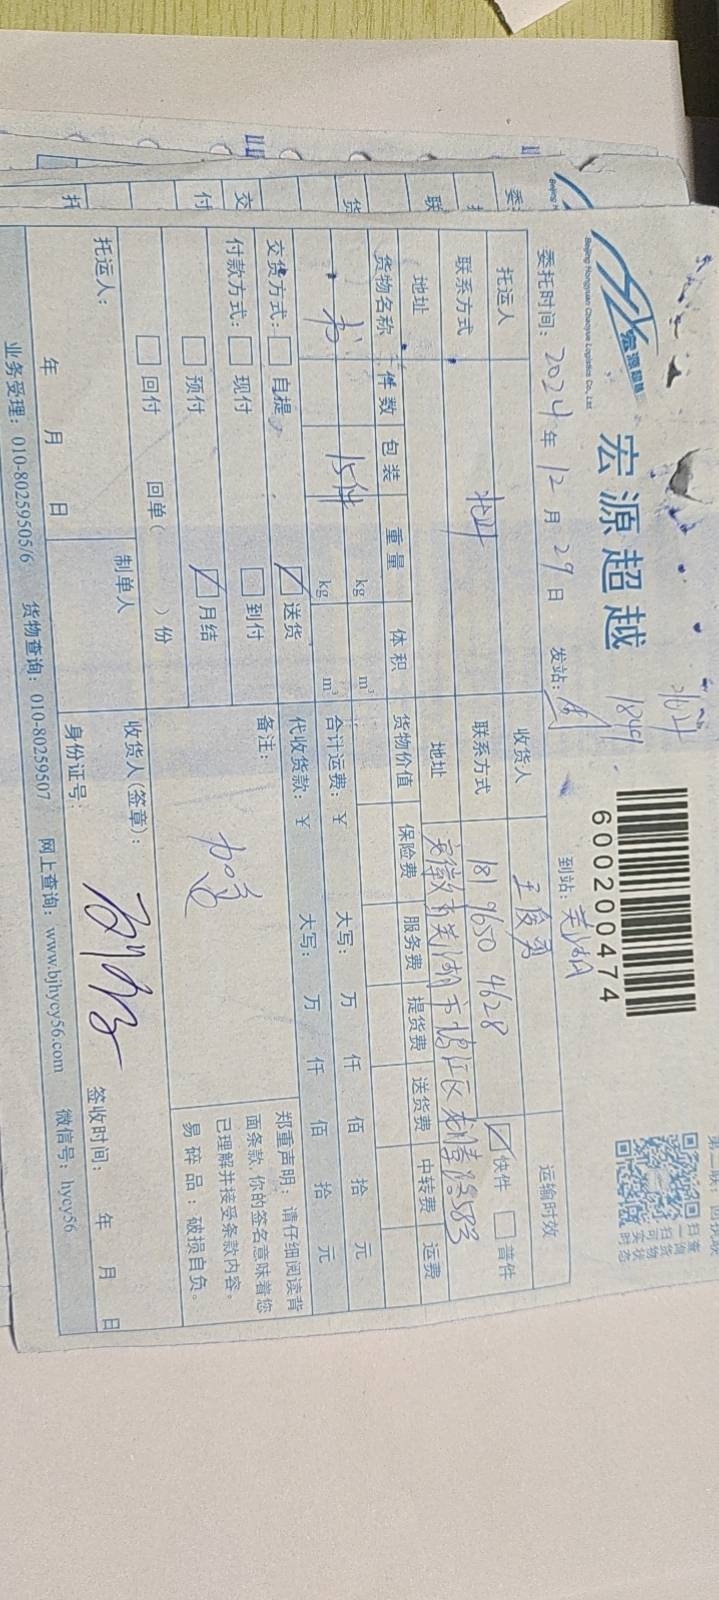 第二联：回执联
扫一扫
查询货物
可实时状态
宏源超越
Beijing Hongyuan Chaoyue Logistics Co., Ltd.
宏源超越
1849
600200474
委托时间：2024年12月29日 发站： 到站：芜湖
托运人 收货人 王俊勇 运输时效
联系方式 联系方式 181 9650 4628 快件 普件
地址 地址 安徽 芜湖市 江区
货物名称 件数 包装 重量 体积 货物价值 保险费 服务费 提货费 送货费 中转费 运费
书 15件 kg m³
kg m³
合计运费：￥ 大写： 万 仟 佰 拾 元
代收货款：￥ 大写： 万 仟 佰 拾 元
交货方式： 自提 送货 备注：
付款方式： 现付 到付
预付 月结
回付 回单（ ）份
加急
郑重声明：请仔细阅读背
面条款，你的签名意味着您
已理解并接受条款内容。
易碎品：破损自负。
托运人： 制单人 收货人(签章)：
年 月 日 身份证号： 签收时间： 年 月 日
业务受理：010-80259505/6 货物查询：010-80259507 网上查询：www.bjhycy56.com 微信号：hycy56